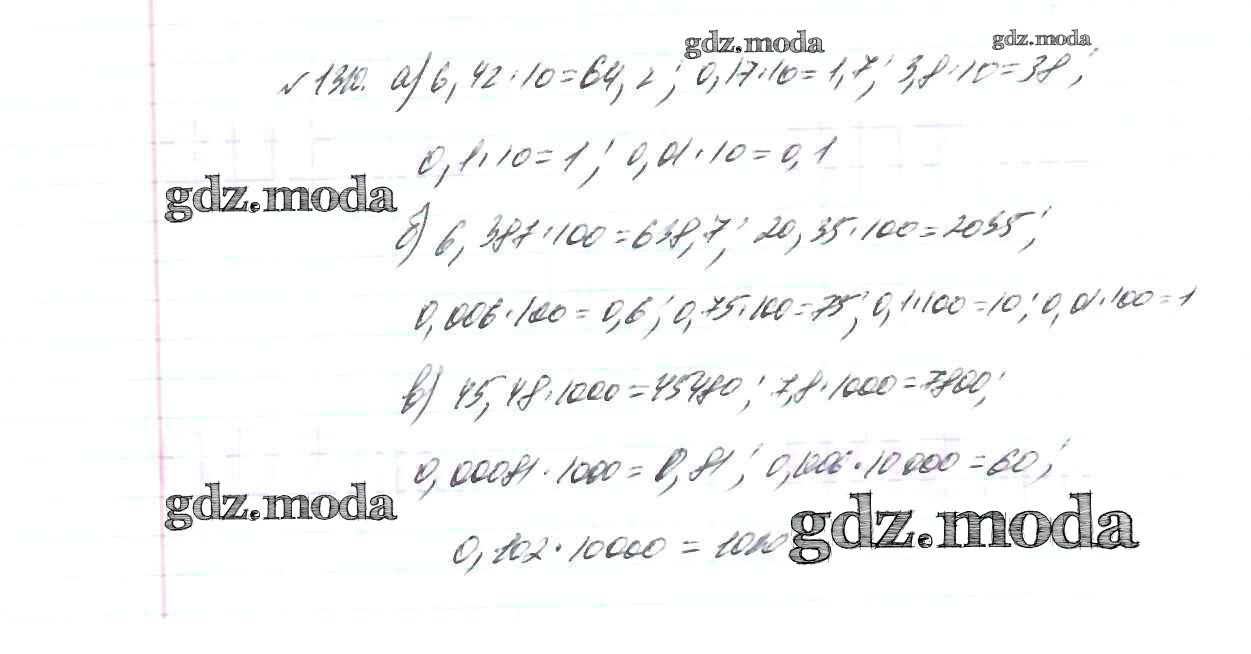 gdz.moda gdz.moda
№1310. а) 6,42·10=64,2; 0,17·10=1,7; 3,8·10=38;
0,1·10=1; 0,01·10=0,1
gdz.moda
б) 6,387·100=638,7; 20,35·100=2035;
0,006·100=0,6; 0,75·100=75; 0,1·100=10; 0,01·100=1
в) 45,48·1000=45480; 7,8·1000=7800;
0,00081·1000=0,81; 0,006·10000=60;
gdz.moda gdz.moda
0,102·10000=1020